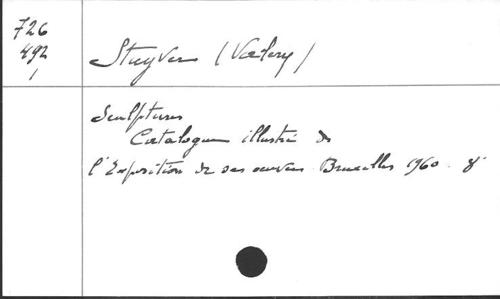 726
492
1
Stuyver (Valery)
Sculptures
Catalogue illustré de
l'Exposition de ses œuvres. Bruxelles 1960. 8°